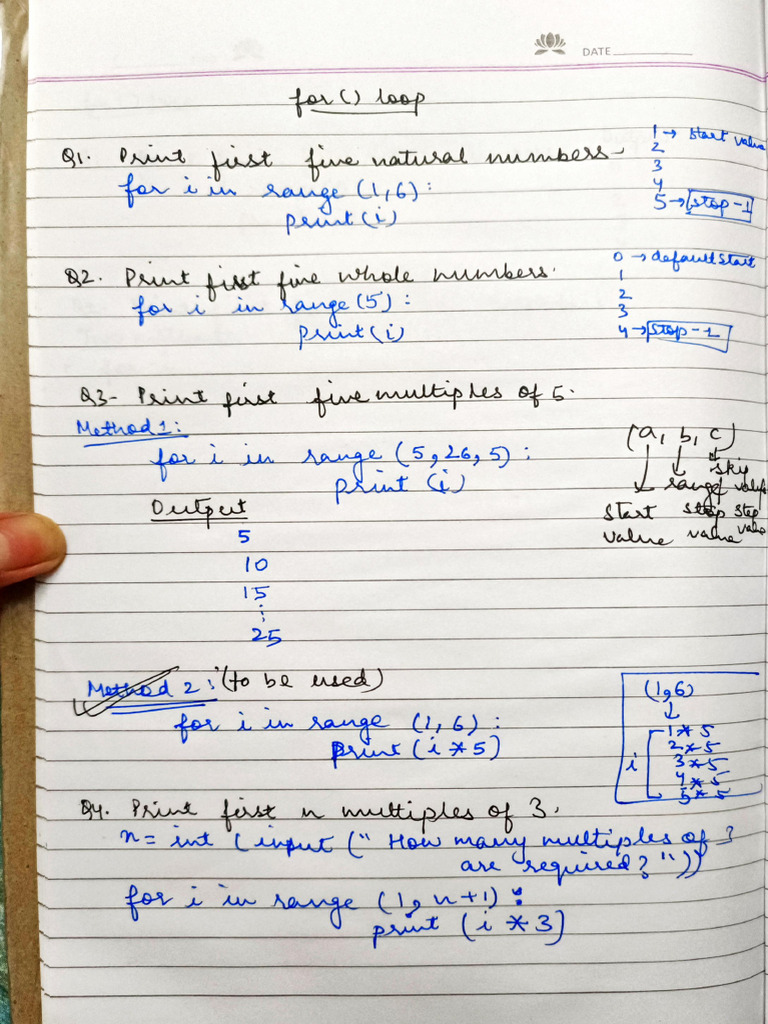 DATE
for() loop
Q1. Print first five natural numbers-
for i in range (1,6):
print(i)
1 → start value
2
3
4
5 → stop-1
Q2. Print first five whole numbers.
for i in range(5):
print(i)
0 → default start
1
2
3
4 → stop-1
Q3- Print first five multiples of 5.
Method 1:
for i in range (5,26,5):
print (i)
(a, b, c)
skip
range value
start stop step
value value value
Output
5
10
15
⋮
25
Method 2: (to be used)
for i in range (1,6):
print (i*5)
(1,6)
↓
1*5
2*5
i 3*5
4*5
5*5
Q4. Print first n multiples of 3.
n = int (input (" How many multiples of 3
are required? "))
for i in range (1, n+1):
print (i * 3)